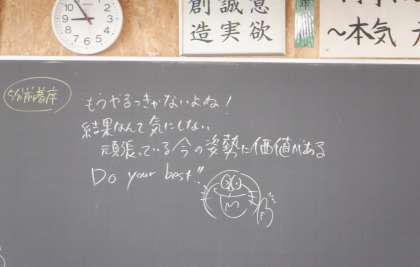 創造
誠実
意欲
〜本気
5分前着席
もうやるっきゃないよね!
結果なんて気にしない
頑張っている今の姿勢に価値がある
Do your best!!